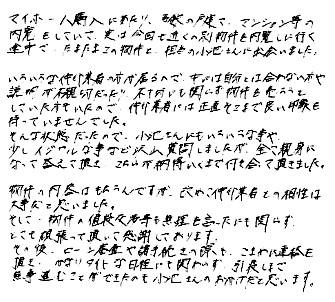 マイホーム購入にあたり、複数の戸建て、マンション等の
内覧をしていて、実は今回も近くの別物件を内覧しに行く
途中で、たまたまこの物件と、担当の小池さんに出会いました。
いろいろな仲介業者の方が居るので、中には自分とは合わないのや
説明が不親切だったり、不十分にも関らず物件を売ろうと
していた方もいたので、仲介業者には正直そこまで良い印象を
持っていませんでした。
そんな状態だったので、小池さんにもいろいろな事や、
少しイジワルな事など沢山質問しましたが、全て親身に
なって答えて頂き、こちらが納得いくまで付き合って頂きました。
物件の内容はもちろんですが、改めて仲介業者との相性は
大事だと思いました。
そして、物件の値段交渉等も無理を言ったにも関らず、
とても頑張って頂いて感謝しております。
その後、ローン審査や諸手続きの際も、こまめに連絡を
頂き、かなりタイトな日程にも関わらず、引渡しまで
無事進むことができたのも小池さんのおかげだと思います。